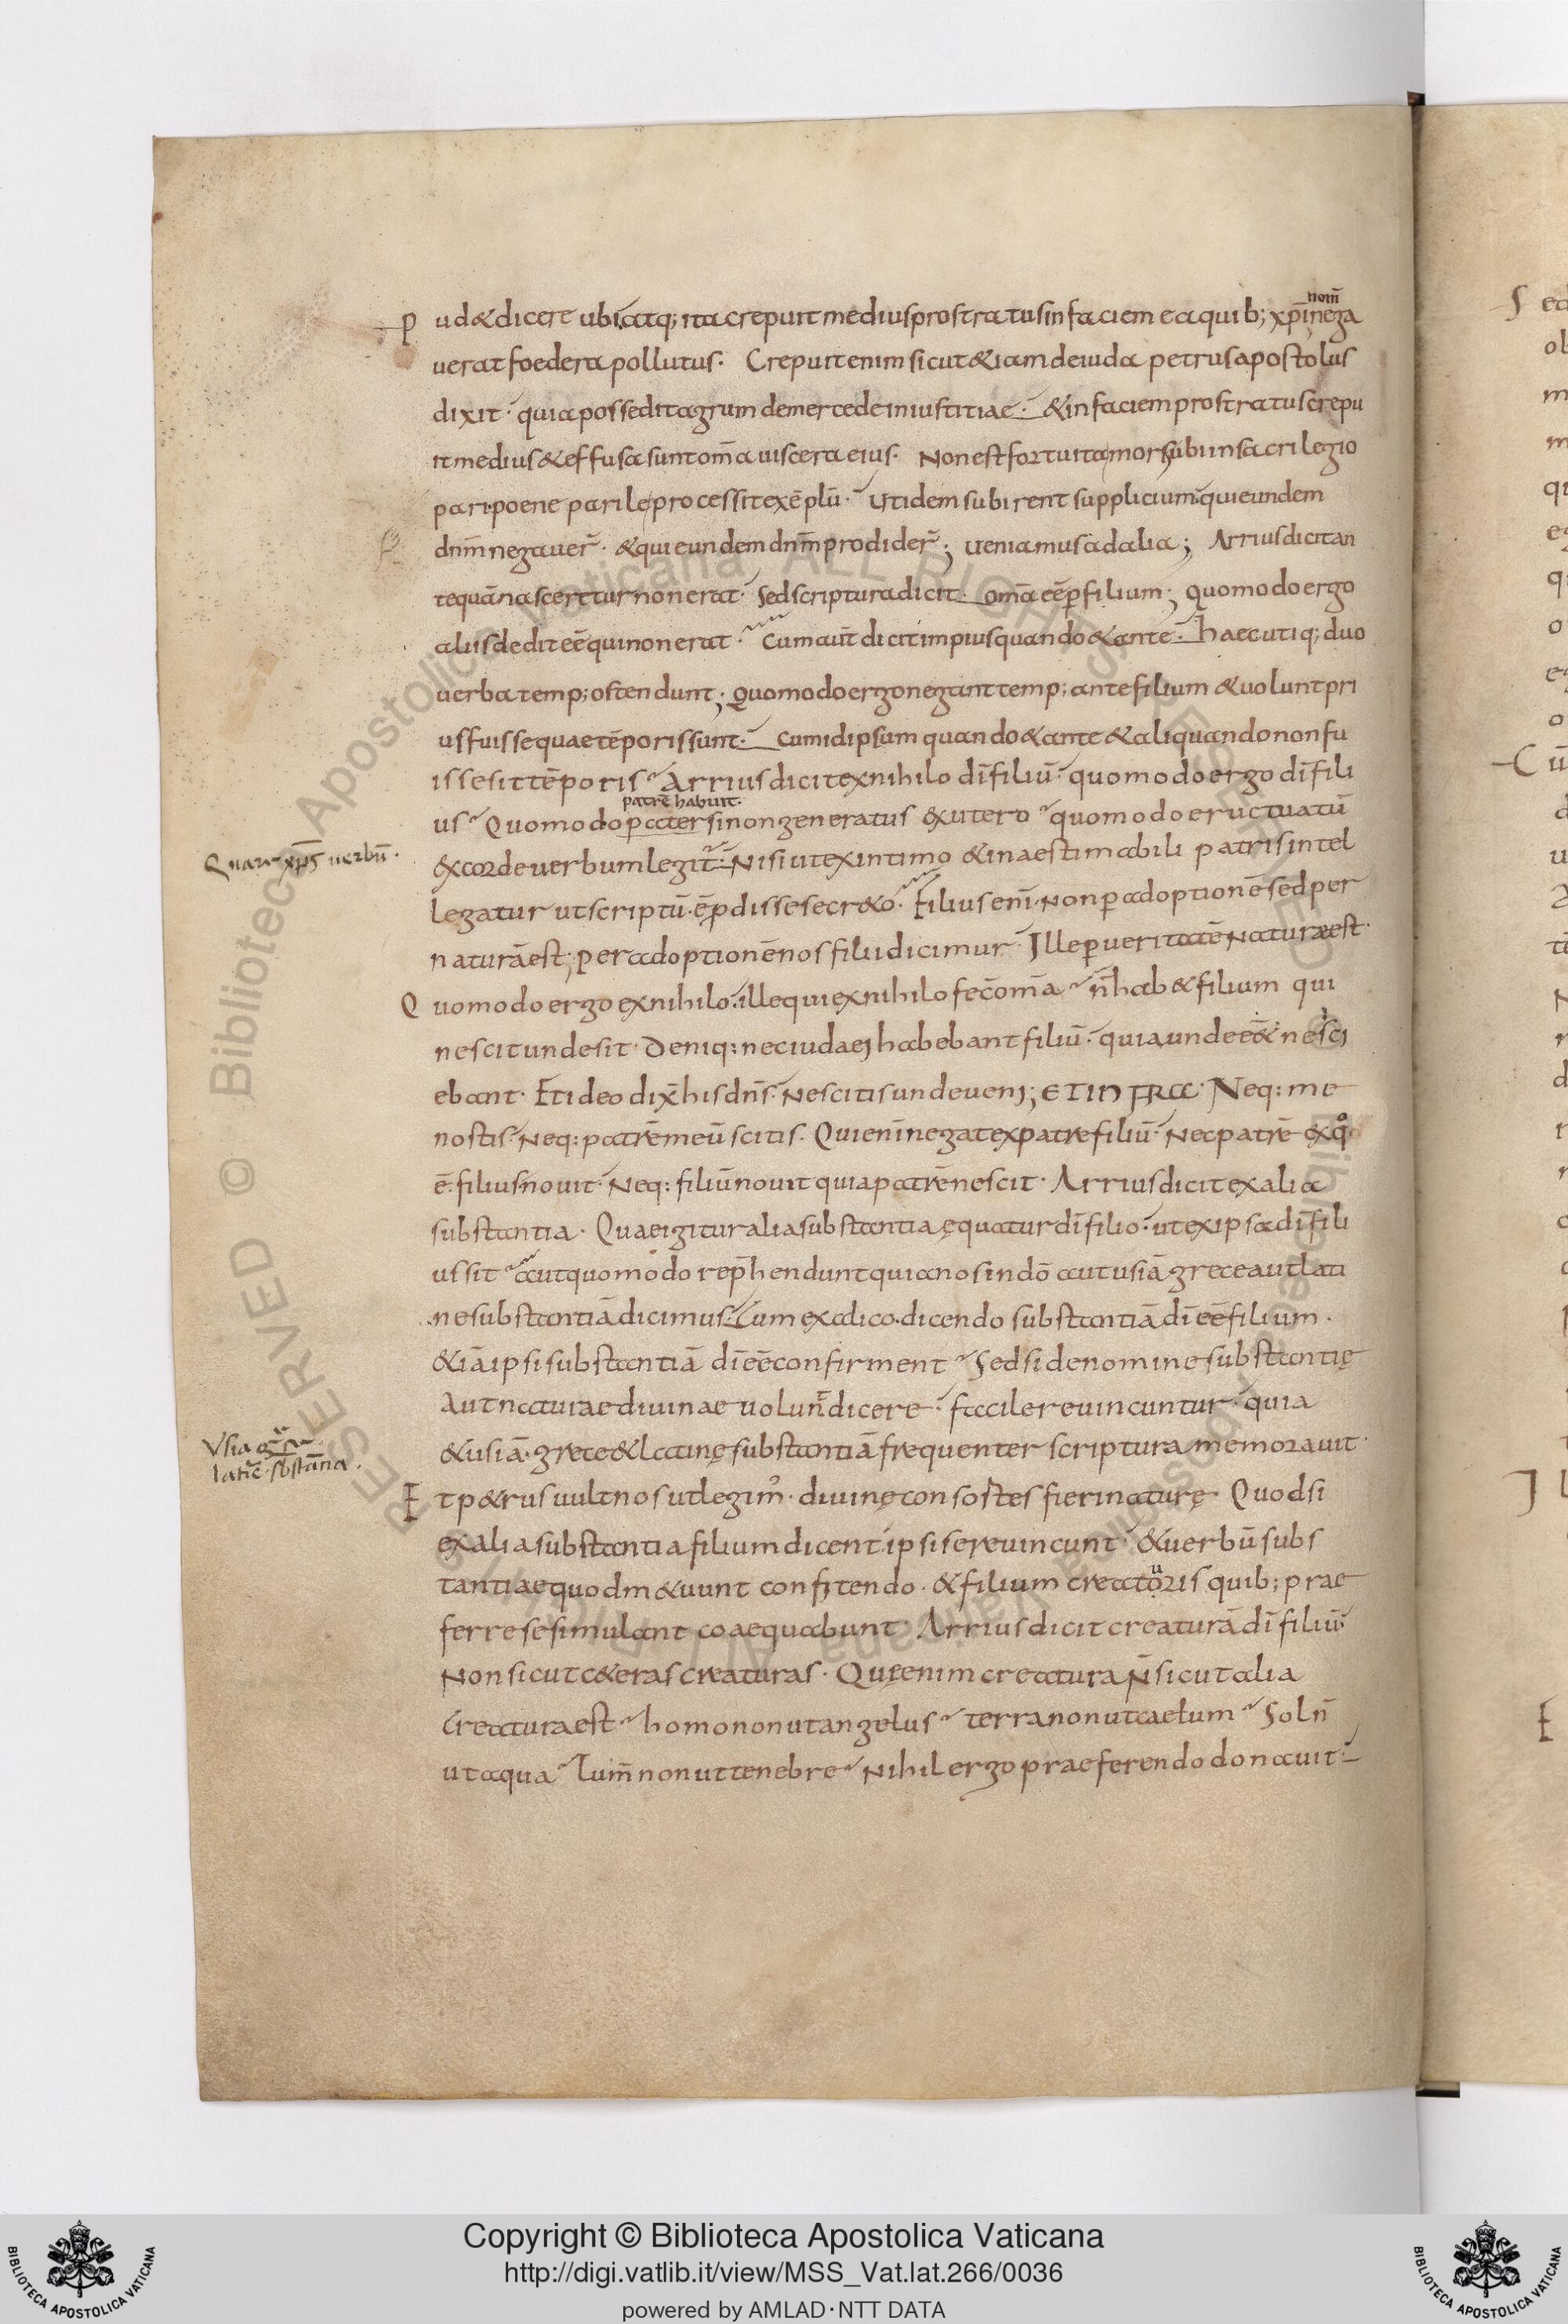 nom̄
P ud& dicere ubi atq; ita crepuit medius prostratus in faciem ea quib; xp̄i nega
uerat foedera pollutus· Crepuit enim sicut &iam de iuda petrus apostolus
dixit· quia possedit agrum de mercede iniustitiae· & in faciem prostratus crepu
it medius & effusa sunt om̄a uiscera eius· Non est fortuita mors ubi in sacrilegio
pari poene pari le processit exēplū· Ut idem subirent supplicium qui eundem
dn̄m negauer̄· & qui eundem dn̄m prodider̄; ueniamus ad alia; Arrius dicit an
tequā nasceretur non erat· Sed scriptura dicit· om̄a eē p filium; Quomodo ergo
aliis dedit eē qui non erat· Cum aut̄ dicit impius quando & ante· haec utiq; duo
uerba temp; ostendunt; Quomodo ergo negant temp; ante filium & uolunt pri
us fuisse quae tēporis sunt· Cum idipsum quando & ante & aliquando non fu
isse sit tēporis· Arrius dicit ex nihilo dī filiū· quomodo ergo dī fili
patrē habuit·
us· Quomodo pater si non generatus ex utero· quomodo eructuatū
Quare xp̄s uerbū·
ex corde uerbum legit· Nisi ut ex intimo & inaestimabili patris intel
legatur ut scriptū· ē pdisse secr&o· Filius enī· non p adoptionē sed per
naturā est; per adoptionē nos filii dicimur· Ille p ueritatē natura est·
Quomodo ergo ex nihilo· ille qui ex nihilo fec̄ om̄a· n̄ hab& filium qui
nescit unde sit· Deniq: nec iudaei habebant filiū· quia unde eē& nesci
ebant· Et ideo dix̄ his dn̄s· Nescitis unde ueni; ET INFRA· Neq: me
nostis· Neq: patrē meū scitis· Qui enī negat ex patre filiū· Nec patrē ex q̊
ē· filius nouit· Neq: filiū nouit quia patrē nescit· Arrius dicit ex alia
substantia· Quae igitur alia substantia ęquatur dī filio· ut ex ipsa dī fili
us sit· aut quomodo rep̄hendunt quia nos in dō aut usiā grece aut lati
ne substantiā dicimus· Cum ex adico· dicendo substantiā dī eē filium·
& iā ipsi substantiā dī eē confirment· Sed si de nomine substantię
Aut naturae diuinae uolun̄ dicere· facile reuincuntur· quia
Usia grē·
latīē· sbstāntia·
& usiā· grece & latinę substantiā frequenter scriptura memorauit·
Et p&rus uult nos ut legim᷒· diuinę consostes fieri naturę· Quod si
ex alia substantia filium dicent ipsi se reuincunt· & uerbū subs
tantiae quod m&uunt confitendo· & filium creatoris quib; prae
ferre se simulant coaequabunt· Arrius dicit creaturā dī filiū·
Non sicut c&eras creaturas· Quę enim creatura n̄ sicut alia
Creatura est· homo non ut angelus· terra non ut caelum· Sol n̄
ut aqua· lum̄ non ut tenebre· Nihil ergo praeferendo donauit·
Copyright © Biblioteca Apostolica Vaticana
http://digi.vatlib.it/view/MSS_Vat.lat.266/0036
powered by AMLAD·NTT DATA
BIBLIOTECA APOSTOLICA VATICANA
BIBLIOTECA APOSTOLICA VATICANA